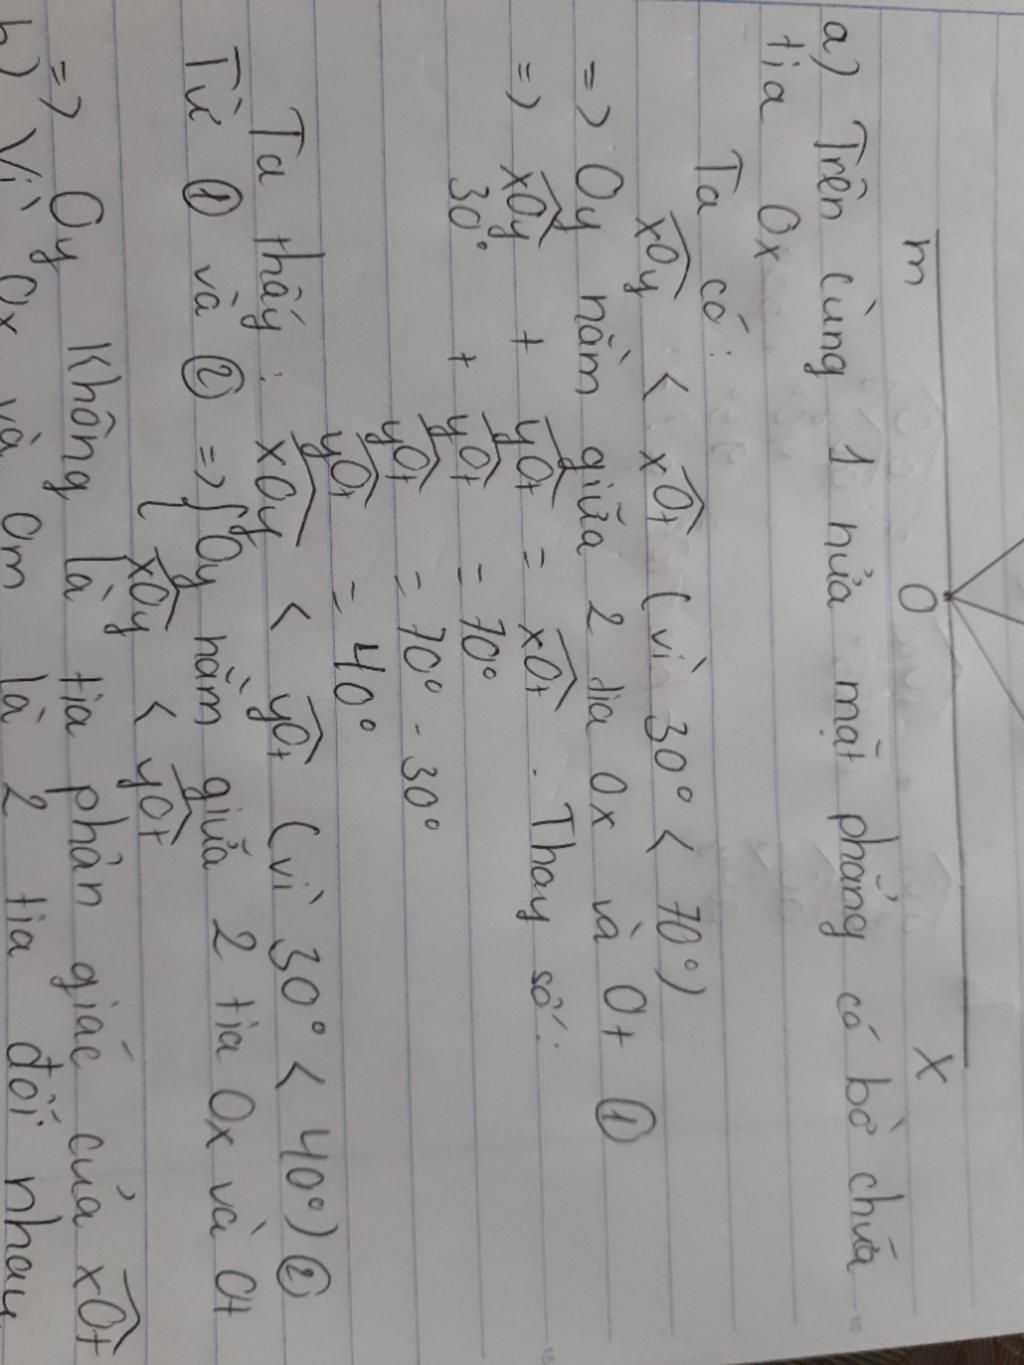 m O x
a) Trên cùng 1 nửa mặt phẳng có bờ chứa
tia Ox
Ta có:
xOy < xOt (vì 30° < 70°)
=> Oy nằm giữa 2 tia Ox và Ot ①
=> xOy + yOt = xOt. Thay số:
30° + yOt = 70°
yOt = 70° - 30°
yOt = 40°
Ta thấy: xOy < yOt (vì 30° < 40°) ②
Từ ① và ② => { Oy nằm giữa 2 tia Ox và Ot
xOy < yOt
=> Oy không là tia phân giác của xOt
b) Vì Ox và Om là 2 tia đối nhau